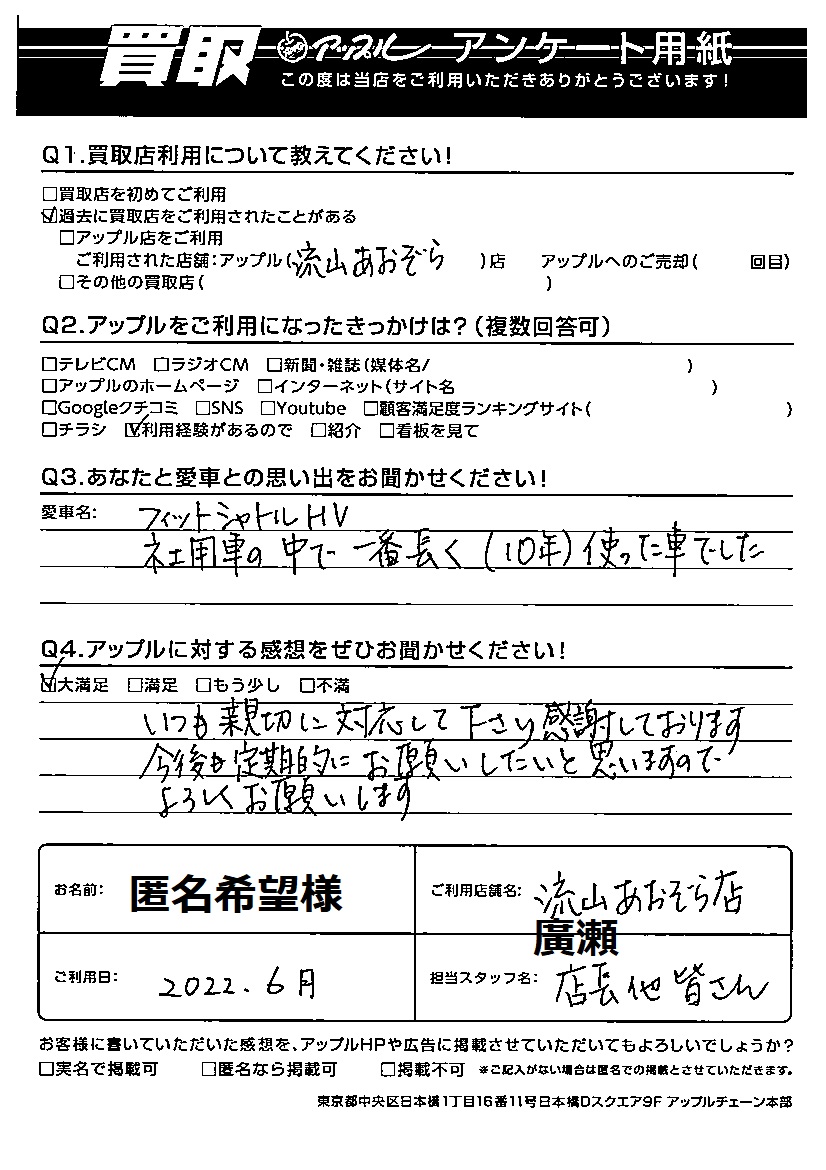 買取 アップル アンケート用紙
この度は当店をご利用いただきありがとうございます！
Q1.買取店利用について教えてください！
□買取店を初めてご利用
☑過去に買取店をご利用されたことがある
□アップル店をご利用
ご利用された店舗：アップル(流山あおぞら )店 アップルへのご売却( 回目)
□その他の買取店( )
Q2.アップルをご利用になったきっかけは？(複数回答可)
□テレビCM □ラジオCM □新聞・雑誌(媒体名/ )
□アップルのホームページ □インターネット(サイト名 )
□Googleクチコミ □SNS □Youtube □顧客満足度ランキングサイト( )
□チラシ ☑利用経験があるので □紹介 □看板を見て
Q3.あなたと愛車との思い出をお聞かせください！
愛車名： フィットシャトルHV
社用車の中で一番長く(10年)使った車でした
Q4.アップルに対する感想をぜひお聞かせください！
☑大満足 □満足 □もう少し □不満
いつも親切に対応して下さり感謝しております
今後も定期的にお願いしたいと思いますので
よろしくお願いします
お名前： 匿名希望様 ご利用店舗名： 流山あおぞら店
廣瀬
ご利用日： 2022.6月 担当スタッフ名： 店長他皆さん
お客様に書いていただいた感想を、アップルHPや広告に掲載させていただいてもよろしいでしょうか？
□実名で掲載可 □匿名なら掲載可 □掲載不可 ※ご記入がない場合は匿名での掲載とさせていただきます。
東京都中央区日本橋1丁目16番11号日本橋Dスクエア9F アップルチェーン本部